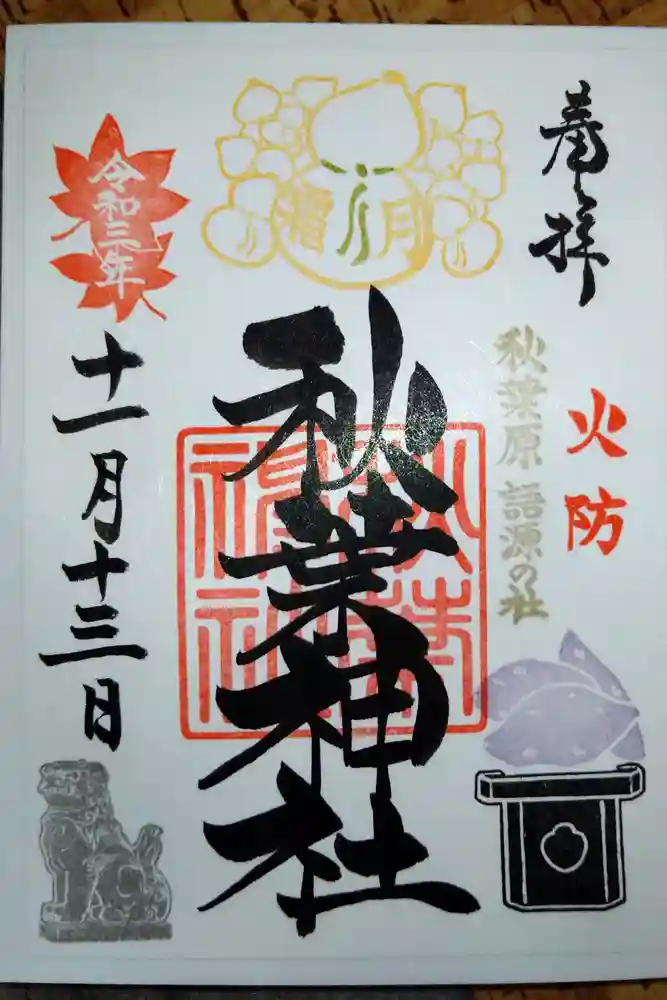 奉拝
火防
秋葉原 語源の社
霜月
秋葉神社
秋葉神社
令和三年
十一月十三日